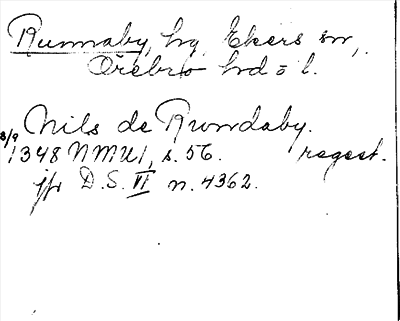 Runnaby, hg, Ekers sn,
Örebro hd o l.
Nils de Rundaby.
8/9 1348 NMU1, s. 56. regest.
jfr D.S. VI n. 4362.